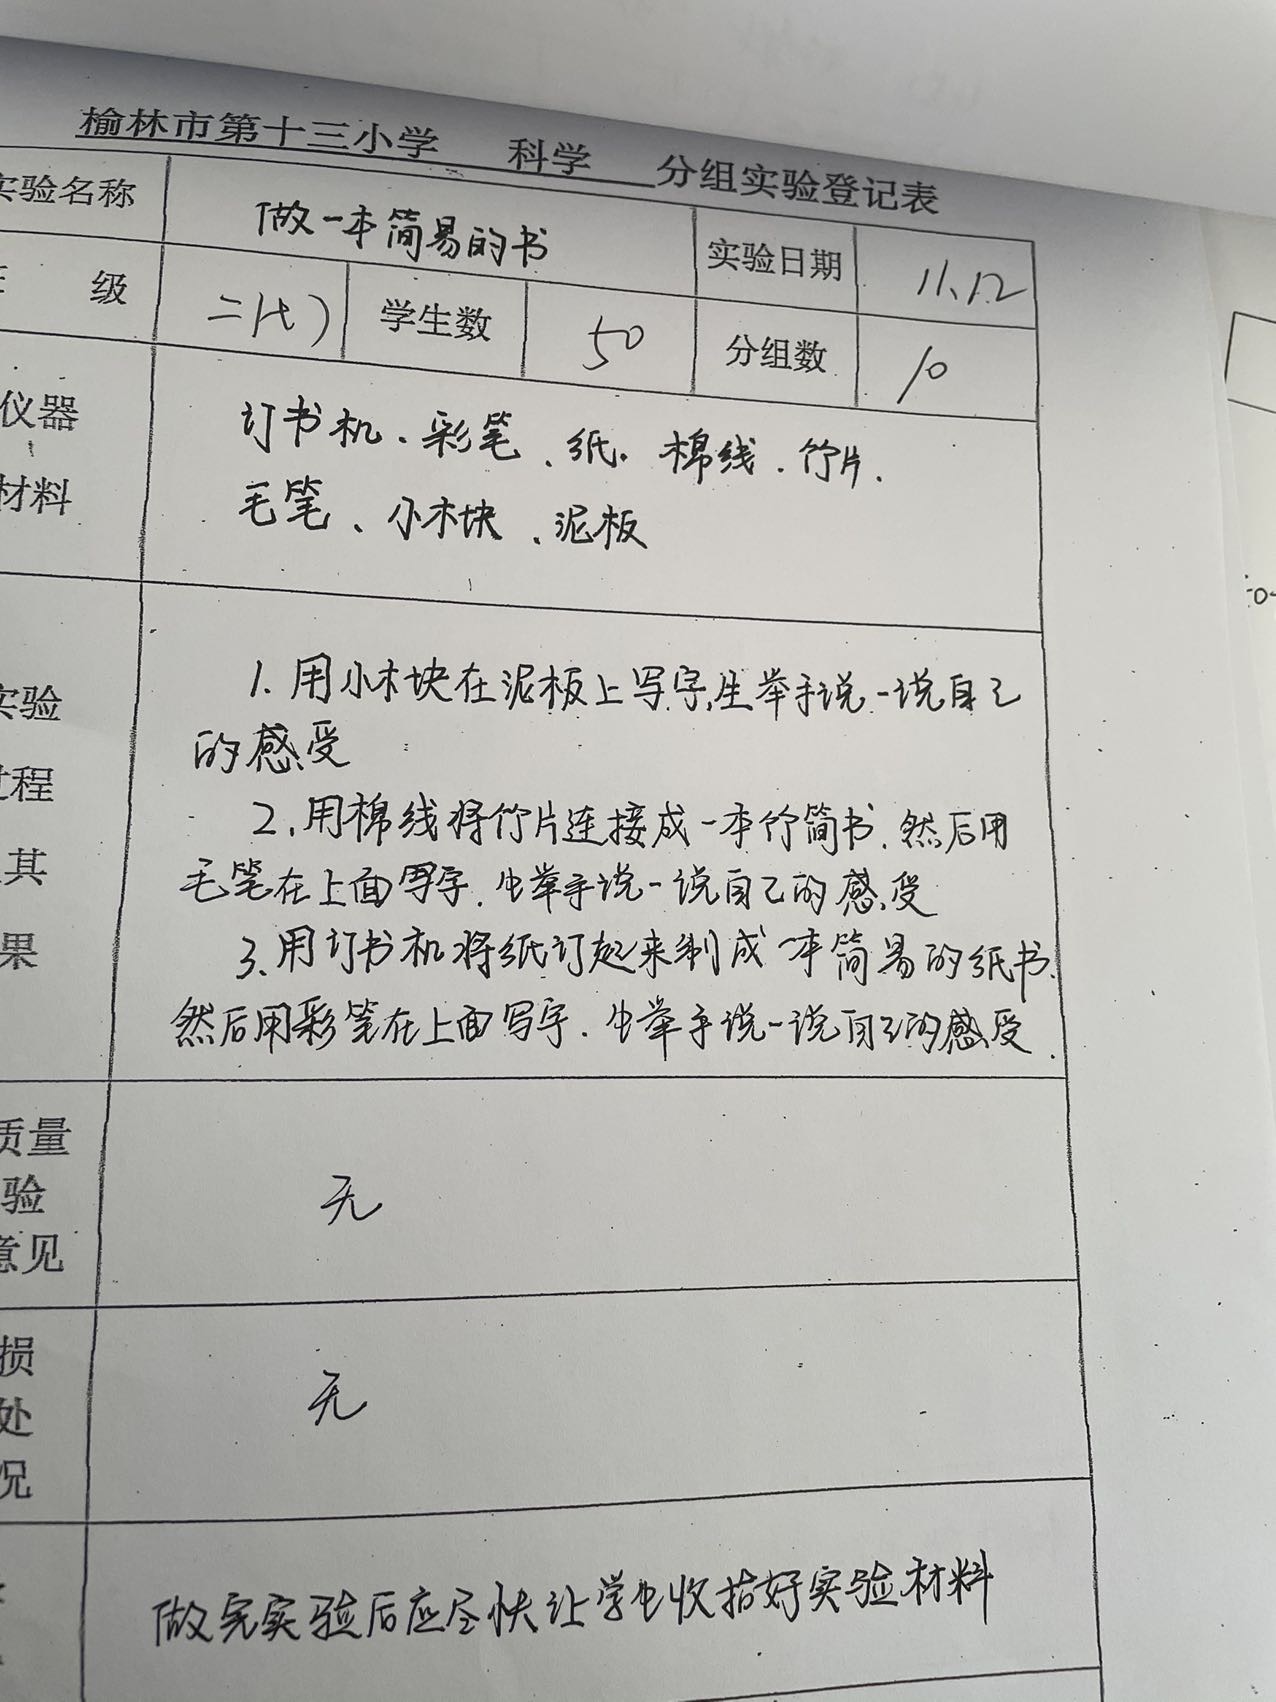 榆林市第十三小学 科学 分组实验登记表
实验名称 做一本简易的书 实验日期 11.12
级 二(七) 学生数 50 分组数 10
仪器 订书机、彩笔、纸、棉线、竹片、
材料 毛笔、小木块、泥板
1.用小木块在泥板上写字,生举手说一说自己
实验
的感受
过程
2.用棉线将竹片连接成一本竹简书.然后用
其 毛笔在上面写字.生举手说一说自己的感受
果 3.用订书机将纸订起来制成一本简易的纸书.
然后用彩笔在上面写字.生举手说一说自己的感受.
质量
验 无
意见
损
处 无
况
做完实验后应尽快让学生收拾好实验材料